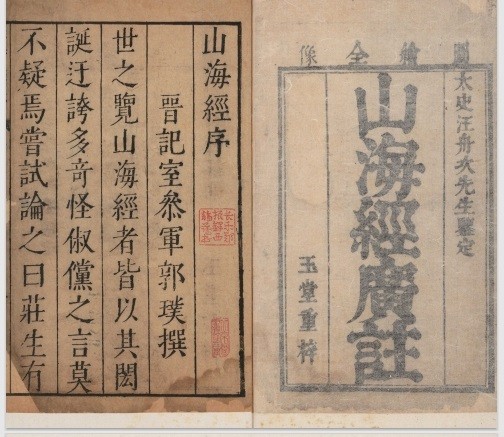 圖繪全像
太史汪舟次先生鑒定
山海經廣註
玉堂重梓
山海經序
晉記室叅軍郭璞撰
世之覽山海經者皆以其閎
誕迂誇多奇怪俶儻之言莫
不疑焉嘗試論之曰莊生有